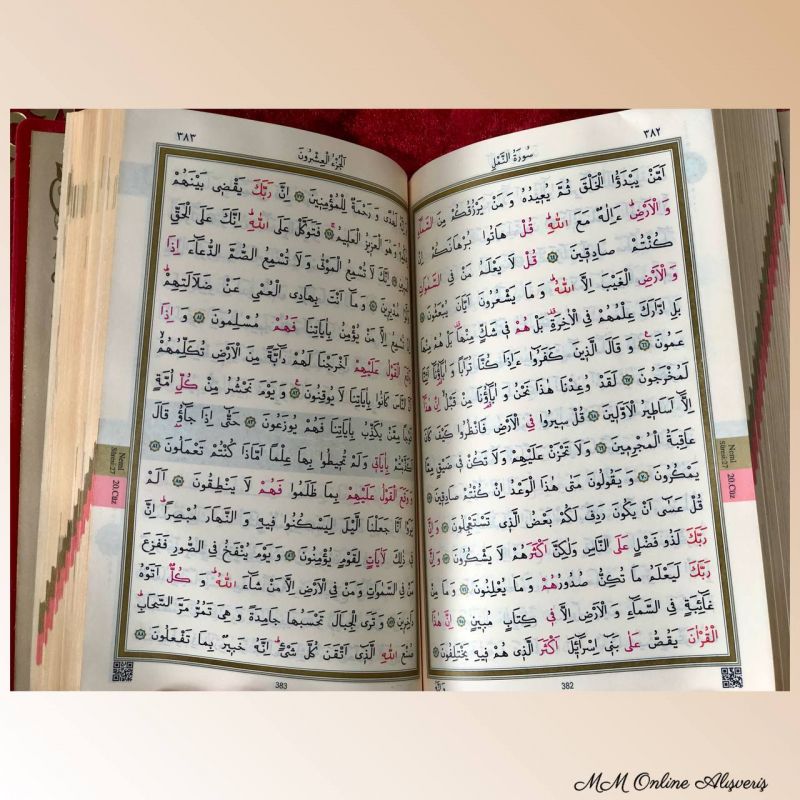 ٣٨٢
سُورَةُ النَّمْلِ
اَمَّنْ يَبْدَؤُا الْخَلْقَ ثُمَّ يُعِيدُهُ وَ مَنْ يَرْزُقُكُمْ مِنَ السَّمَاءِ
وَ الْاَرْضِ ءَاِلٰهٌ مَعَ اللّٰهِ قُلْ هَاتُوا بُرْهَانَكُمْ اِنْ
كُنْتُمْ صَادِقِينَ ٦٤ قُلْ لَا يَعْلَمُ مَنْ فِى السَّمٰوَاتِ
وَ الْاَرْضِ الْغَيْبَ اِلَّا اللّٰهُ وَ مَا يَشْعُرُونَ اَيَّانَ يُبْعَثُونَ ٦٥
بَلِ ادَّارَكَ عِلْمُهُمْ فِى الْاٰخِرَةِ بَلْ هُمْ فِى شَكٍّ مِنْهَا بَلْ هُمْ مِنْهَا
عَمُونَ ٦٦ وَ قَالَ الَّذِينَ كَفَرُوا ءَاِذَا كُنَّا تُرَابًا وَ اٰبَاؤُنَا اَئِنَّا
لَمُخْرَجُونَ ٦٧ لَقَدْ وُعِدْنَا هٰذَا نَحْنُ وَ اٰبَاؤُنَا مِنْ قَبْلُ اِنْ هٰذَا
اِلَّا اَسَاطِيرُ الْاَوَّلِينَ ٦٨ قُلْ سِيرُوا فِى الْاَرْضِ فَانْظُرُوا كَيْفَ كَانَ
عَاقِبَةُ الْمُجْرِمِينَ ٦٩ وَ لَا تَحْزَنْ عَلَيْهِمْ وَ لَا تَكُنْ فِى ضَيْقٍ مِمَّا
يَمْكُرُونَ ٧٠ وَ يَقُولُونَ مَتٰى هٰذَا الْوَعْدُ اِنْ كُنْتُمْ صَادِقِينَ ٧١
قُلْ عَسٰى اَنْ يَكُونَ رَدِفَ لَكُمْ بَعْضُ الَّذِى تَسْتَعْجِلُونَ ٧٢ وَ اِنَّ
رَبَّكَ لَذُو فَضْلٍ عَلَى النَّاسِ وَ لٰكِنَّ اَكْثَرَهُمْ لَا يَشْكُرُونَ ٧٣ وَ اِنَّ
رَبَّكَ لَيَعْلَمُ مَا تُكِنُّ صُدُورُهُمْ وَ مَا يُعْلِنُونَ ٧٤ وَ مَا مِنْ
غَائِبَةٍ فِى السَّمَاءِ وَ الْاَرْضِ اِلَّا فِى كِتَابٍ مُبِينٍ ٧٥ اِنَّ هٰذَا
الْقُرْاٰنَ يَقُصُّ عَلٰى بَنِى اِسْرَائِيلَ اَكْثَرَ الَّذِى هُمْ فِيهِ يَخْتَلِفُونَ ٧٦
وَاِنَّهُ
382
Neml
Sûresi:27
20.Cüz
٣٨٣
اَلْجُزْءُ الْعِشْرُونَ
لَهُدًى وَ رَحْمَةٌ لِلْمُؤْمِنِينَ ٧٧ اِنَّ رَبَّكَ يَقْضِى بَيْنَهُمْ
وَ هُوَ الْعَزِيزُ الْعَلِيمُ ٧٨ فَتَوَكَّلْ عَلَى اللّٰهِ اِنَّكَ عَلَى الْحَقِّ
اِنَّكَ لَا تُسْمِعُ الْمَوْتٰى وَ لَا تُسْمِعُ الصُّمَّ الدُّعَاءَ اِذَا
مُدْبِرِينَ ٨٠ وَ مَا اَنْتَ بِهَادِى الْعُمْىِ عَنْ ضَلَالَتِهِمْ
تُسْمِعُ اِلَّا مَنْ يُؤْمِنُ بِاٰيَاتِنَا فَهُمْ مُسْلِمُونَ ٨١ وَ اِذَا
وَقَعَ الْقَوْلُ عَلَيْهِمْ اَخْرَجْنَا لَهُمْ دَابَّةً مِنَ الْاَرْضِ تُكَلِّمُهُمْ
النَّاسَ كَانُوا بِاٰيَاتِنَا لَا يُوقِنُونَ ٨٢ وَ يَوْمَ نَحْشُرُ مِنْ كُلِّ اُمَّةٍ
فَوْجًا مِمَّنْ يُكَذِّبُ بِاٰيَاتِنَا فَهُمْ يُوزَعُونَ ٨٣ حَتّٰى اِذَا جَاؤُ قَالَ
اَكَذَّبْتُمْ بِاٰيَاتِى وَ لَمْ تُحِيطُوا بِهَا عِلْمًا اَمَّاذَا كُنْتُمْ تَعْمَلُونَ ٨٤
وَ وَقَعَ الْقَوْلُ عَلَيْهِمْ بِمَا ظَلَمُوا فَهُمْ لَا يَنْطِقُونَ ٨٥ اَلَمْ
يَرَوْا اَنَّا جَعَلْنَا الَّيْلَ لِيَسْكُنُوا فِيهِ وَ النَّهَارَ مُبْصِرًا اِنَّ
فِى ذٰلِكَ لَاٰيَاتٍ لِقَوْمٍ يُؤْمِنُونَ ٨٦ وَ يَوْمَ يُنْفَخُ فِى الصُّورِ فَفَزِعَ
مَنْ فِى السَّمٰوَاتِ وَ مَنْ فِى الْاَرْضِ اِلَّا مَنْ شَاءَ اللّٰهُ وَ كُلٌّ اَتَوْهُ
دَاخِرِينَ ٨٧ وَ تَرَى الْجِبَالَ تَحْسَبُهَا جَامِدَةً وَ هِىَ تَمُرُّ مَرَّ السَّحَابِ
صُنْعَ اللّٰهِ الَّذِى اَتْقَنَ كُلَّ شَىْءٍ اِنَّهُ خَبِيرٌ بِمَا تَفْعَلُونَ ٨٨
383
Neml
Sûresi:27
20.Cüz
MM Online Alışveriş